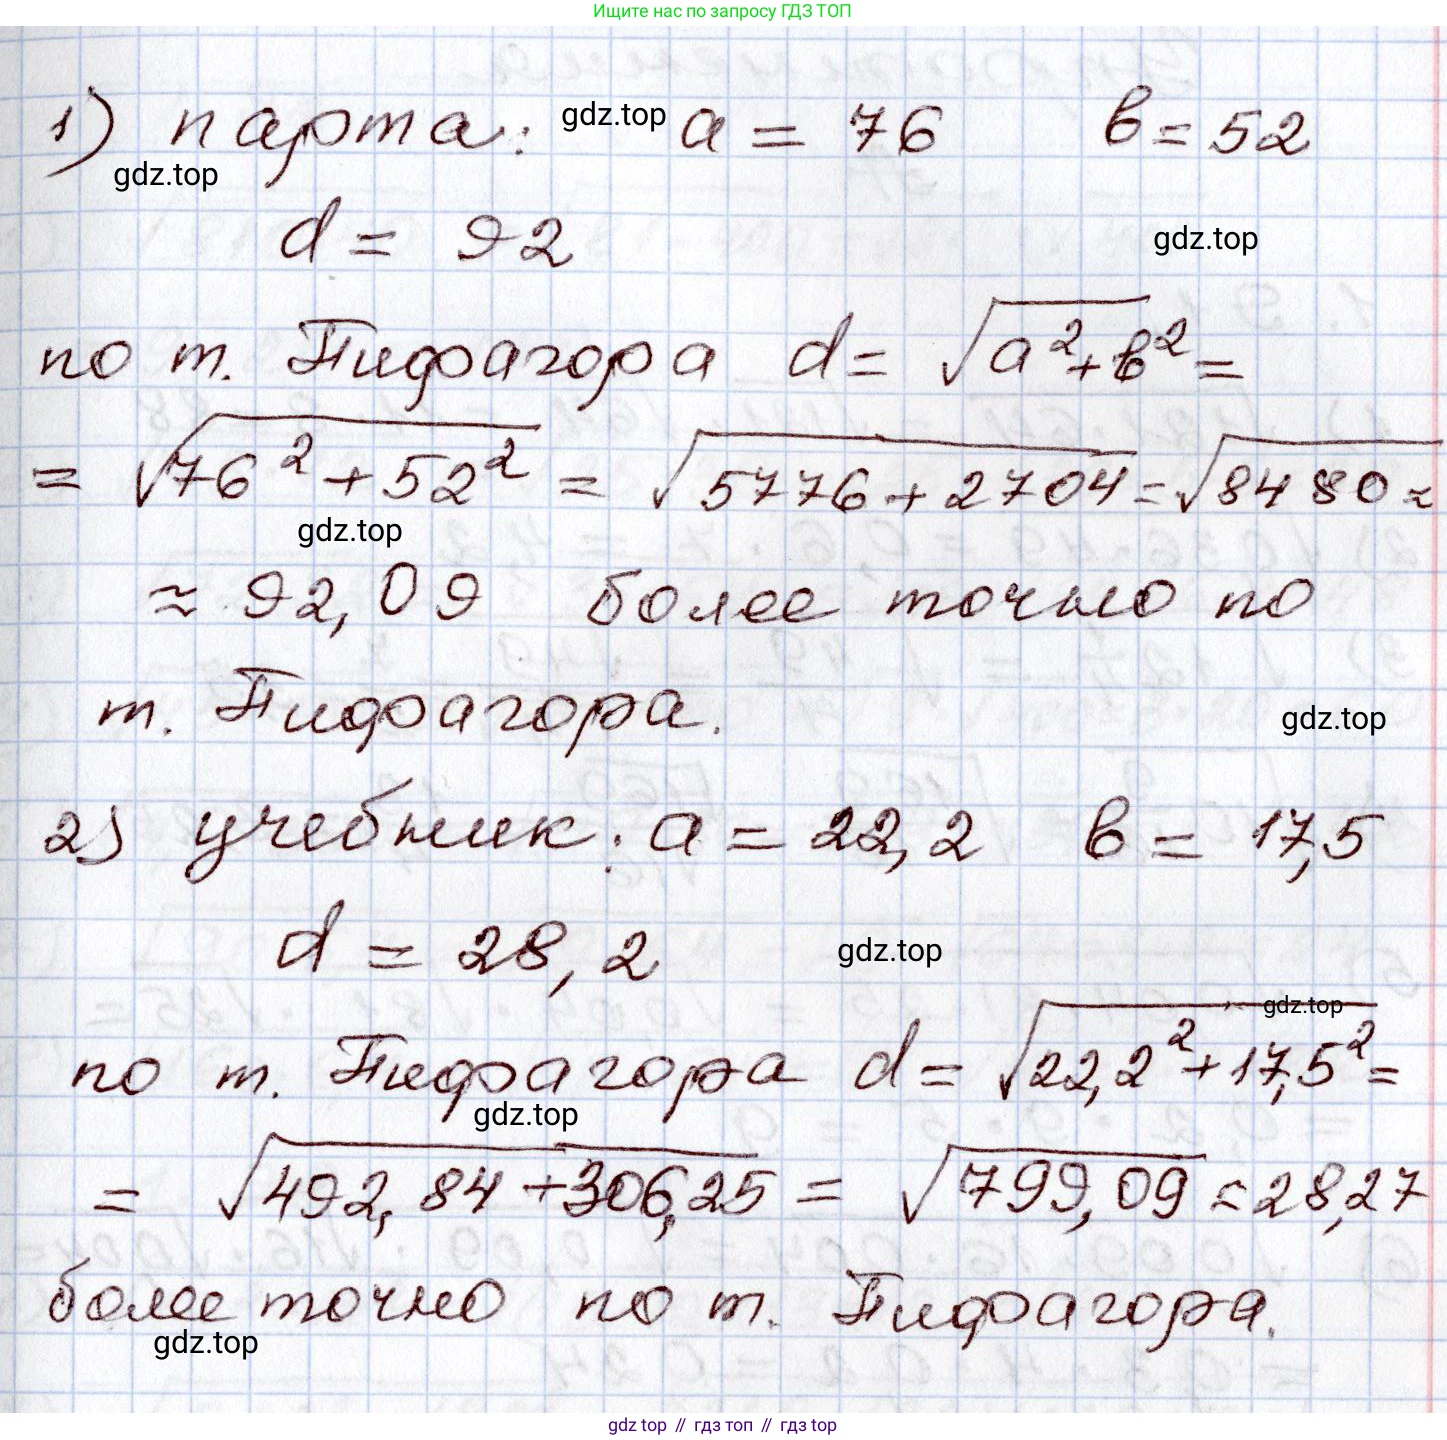 Ищите нас по запросу ГДЗ ТОП
1) парта: a = 76 b = 52
gdz.top
gdz.top
d = 92
gdz.top
по т. Пифагора d = √a²+b² =
= √76²+52² = √5776+2704 = √8480 ≈
gdz.top
≈ 92,09 более точно по
т. Пифагора.
gdz.top
2) учебник: a = 22,2 b = 17,5
d = 28,2
gdz.top
gdz.top
по т. Пифагора d = √22,2²+17,5² =
gdz.top
= √492,84+306,25 = √799,09 = 28,27
более точно по т. Пифагора.
gdz.top
gdz top // гдз топ // гдз top